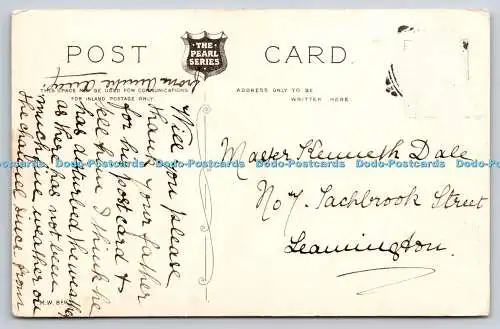 POST CARD.
THE
PEARL
SERIES
THIS SPACE MAY BE USED FOR COMMUNICATIONS
FOR INLAND POSTAGE ONLY.
ADDRESS ONLY TO BE
WRITTEN HERE.
Will you please
thank your father
for his postcard &
tell him I think he
has disturbed the weather
as her has not been
much fine weather on
the channel since from
from Auntie
Master Kenneth Dale
No 7. Tachbrook Street
Leamington.
Dodo-Postcards Dodo-Postcards Dodo-Postcards Dodo-Postcards Dodo-Postcards